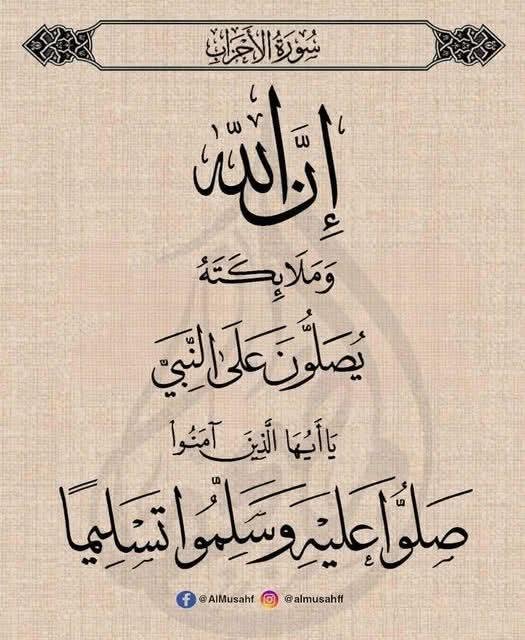 سُورَةُ الأَحْزَاب
إِنَّ اللَّهَ
وَمَلَائِكَتَهُ
يُصَلُّونَ عَلَى النَّبِيِّ
يَا أَيُّهَا الَّذِينَ آمَنُوا
صَلُّوا عَلَيْهِ وَسَلِّمُوا تَسْلِيمًا
@AlMusahf @almusahff